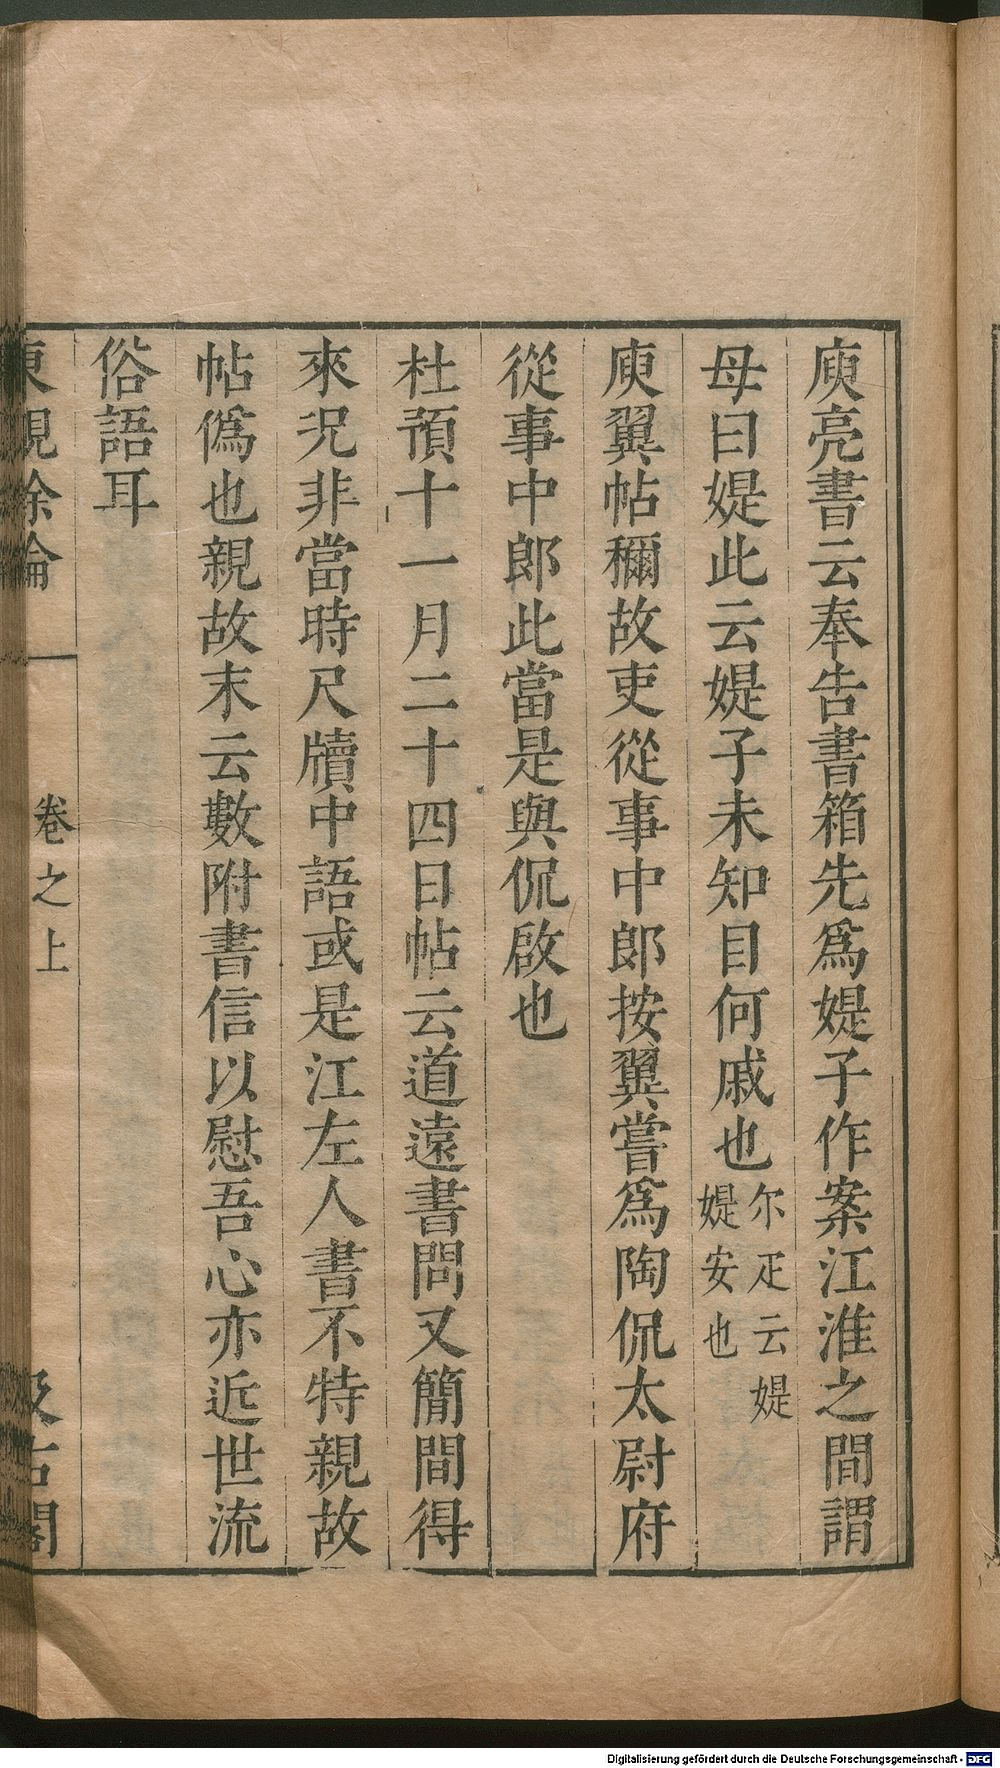 庾亮書云奉告書箱先爲媞子作案江淮之間謂
母曰媞此云媞子未知目何戚也尔疋云媞媞安也
庾翼帖稱故吏從事中郎按翼嘗爲陶侃太尉府
從事中郎此當是與侃啟也
杜預十一月二十四日帖云道遠書問又簡間得
來況非當時尺牘中語或是江左人書不特親故
帖僞也親故末云數附書信以慰吾心亦近世流
俗語耳
東觀余論
卷之上
汲古閣
Digitalisierung gefördert durch die Deutsche Forschungsgemeinschaft - DFG